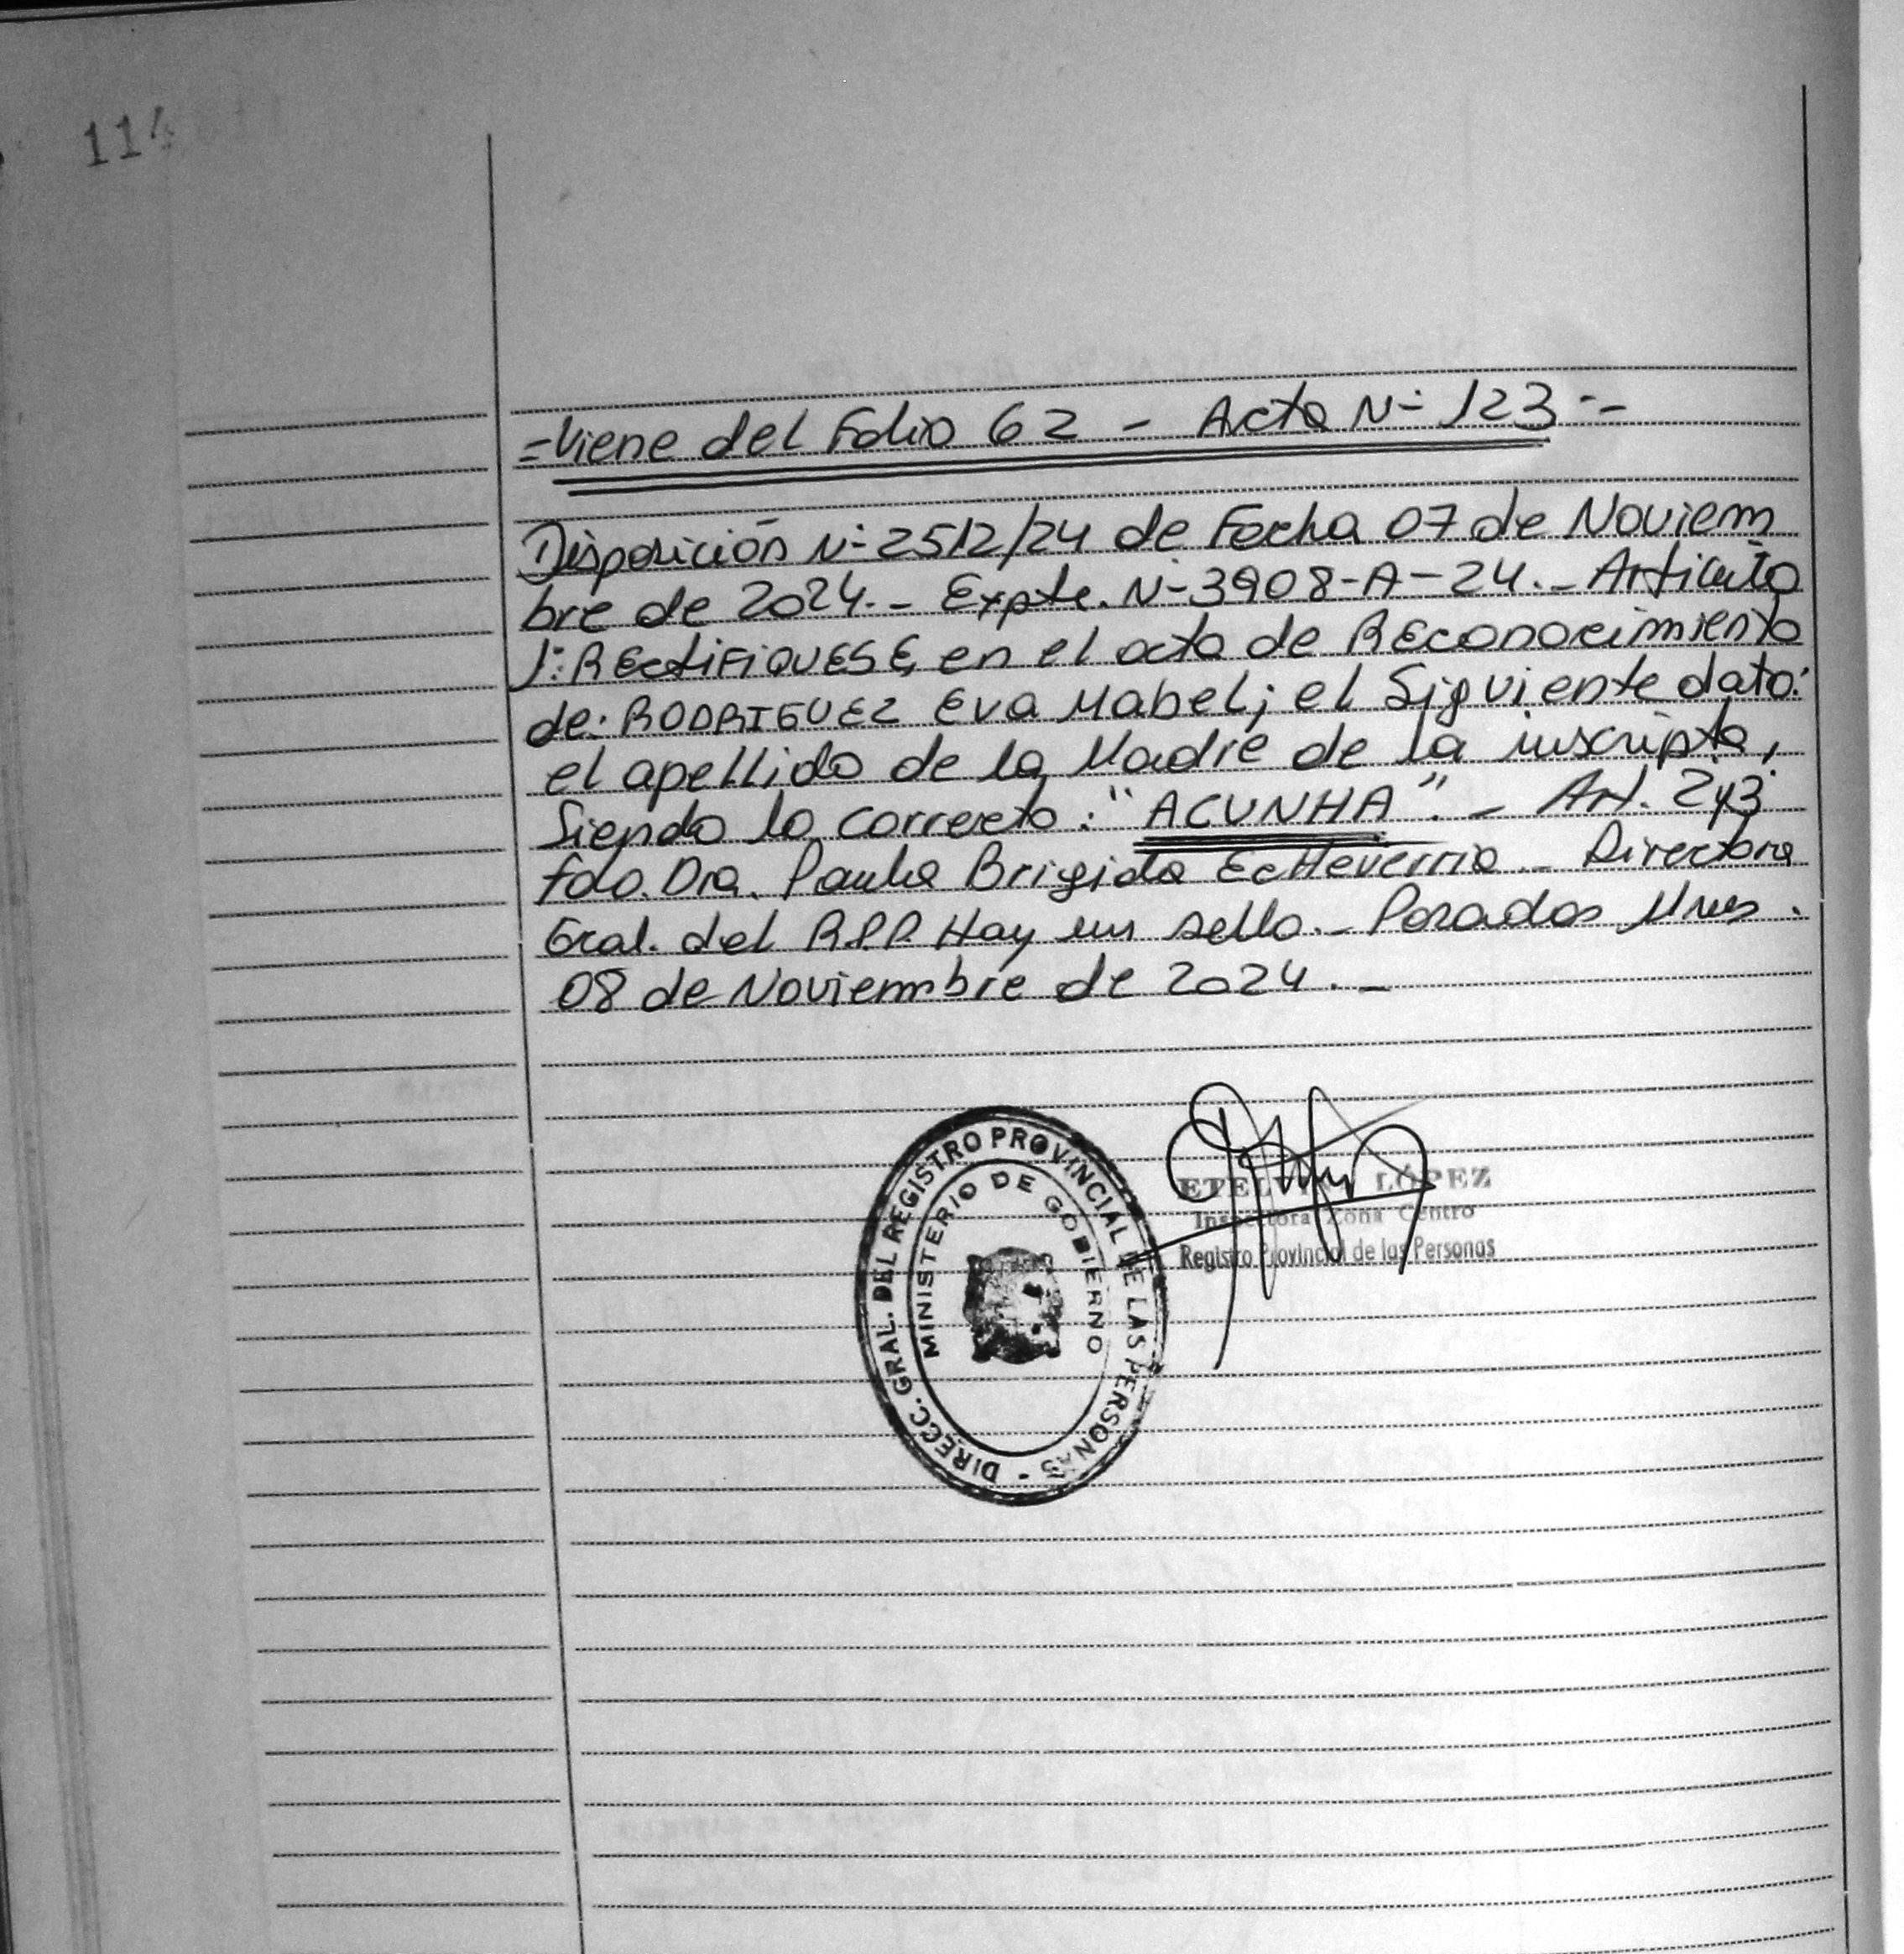 114
=Viene del Folio 62 - Acta N- 123.-
Disposición N- 2512/24 de Fecha 07 de Noviem
bre de 2024.- Expte. N- 3908-A-24.- Articulo
1: RECTIFIQUESE, en el acta de Reconocimiento
de: RODRIGUEZ Eva Mabel; el Siguiente dato:
el apellido de la Madre de la inscripta,
Siendo lo correcto: "ACUNHA".- Art. 2y3
fdo. Dra. Paula Brigida Echeverria - Directora
Gral. del R.P.P. Hay un sello.- Posadas Mnes.
08 de Noviembre de 2024.-
DIRECC. GRAL. DEL REGISTRO PROVINCIAL DE LAS PERSONAS -
MINISTERIO DE GOBIERNO
LÓPEZ
Inspectora Zona Centro
Registro Provincial de las Personas